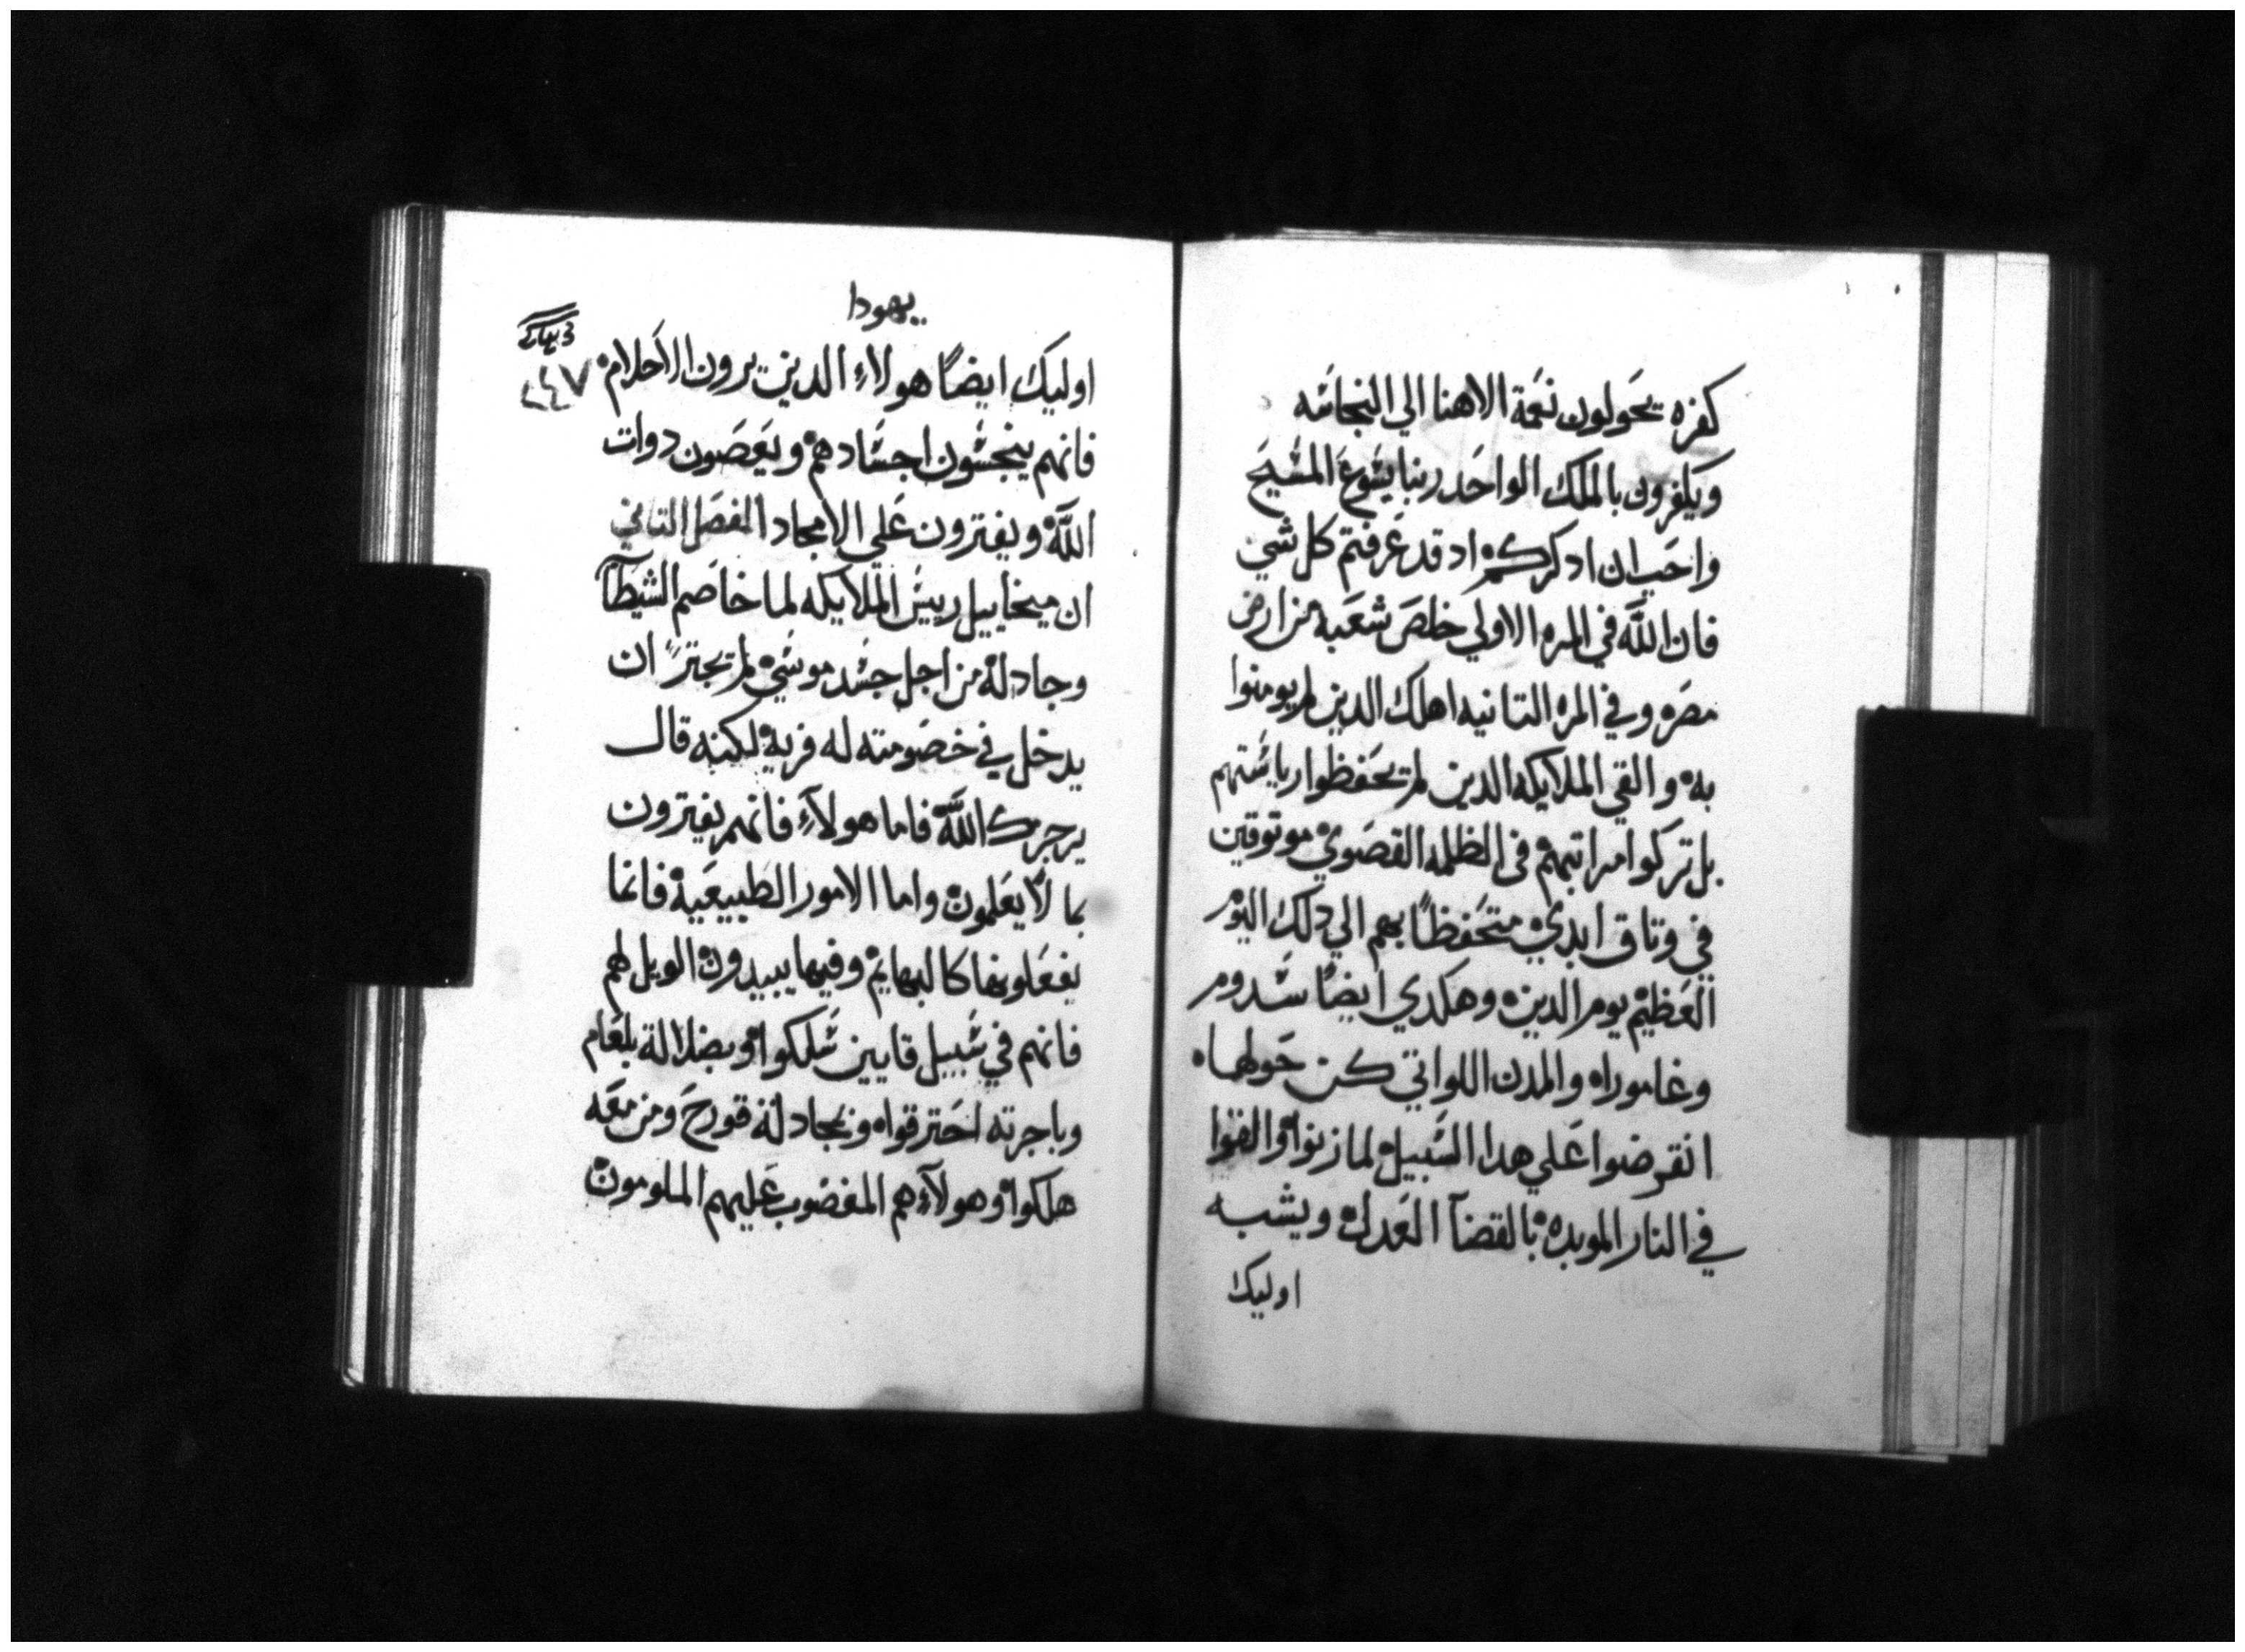 كفره يحَولون نعَمة الاهنا الي النجاسَه
ويكفرون بالملك الواحَد ربنا يسَوعَ المسَيحَ
واحَب ان ادكركم اد قد عَرفتم كل شي
فان اللَّه في المره الاولي خلصَ شعَبه من ارض
مصَره وفي المره التانيه اهلك الدين لم يومنوا
به والقي الملايكه الدين لم يحَفظوا رياسَتهم
بل تركوا مراتبهم في الظلمه القصَوي موتوقين
في وتاق ابدي متحَفظاً بهم الي دلك اليوم
العَظيم يوم الدين وهكدي ايضاً سَدوم
وغاموراه والمدن اللواتي كن حَولهما
انقرضوا عَلي هدا السَبيل لما زنوا والقوا
في النار الموبده بالقضآ العَدل ويشبه
اوليك
يهودا
٢٤٧
اوليك ايضاً هولاء الدين يرون الاحَلام
فانهم ينجسَون اجسَادهم ويعَصَون دوات
اللَّه ويفترون عَلي الامجاد الفصَل التاني
ان ميخاييل رييسَ الملايكه لما خاصَم الشيَطآن
وجادله من اجل جسَد موسَي لم يجترً ان
يدخل في خصَومته له فريه لكنه قال
يزجرك اللَّه فاما هولآءِ فانهم يفترون
بما لا يعَلمون واما الامور الطبيعَيه فانما
يفعَلونها كالبهايم وفيها يبيدون الويل لهم
فانهم في سَبيل قايين سَلكوا وبضلالة بلعَام
وباجرته احَترقواه وبمجادلة قورحَ ومن معَه
هلكوا وهولآءِ هم المغضَوب عَليهم الملومون